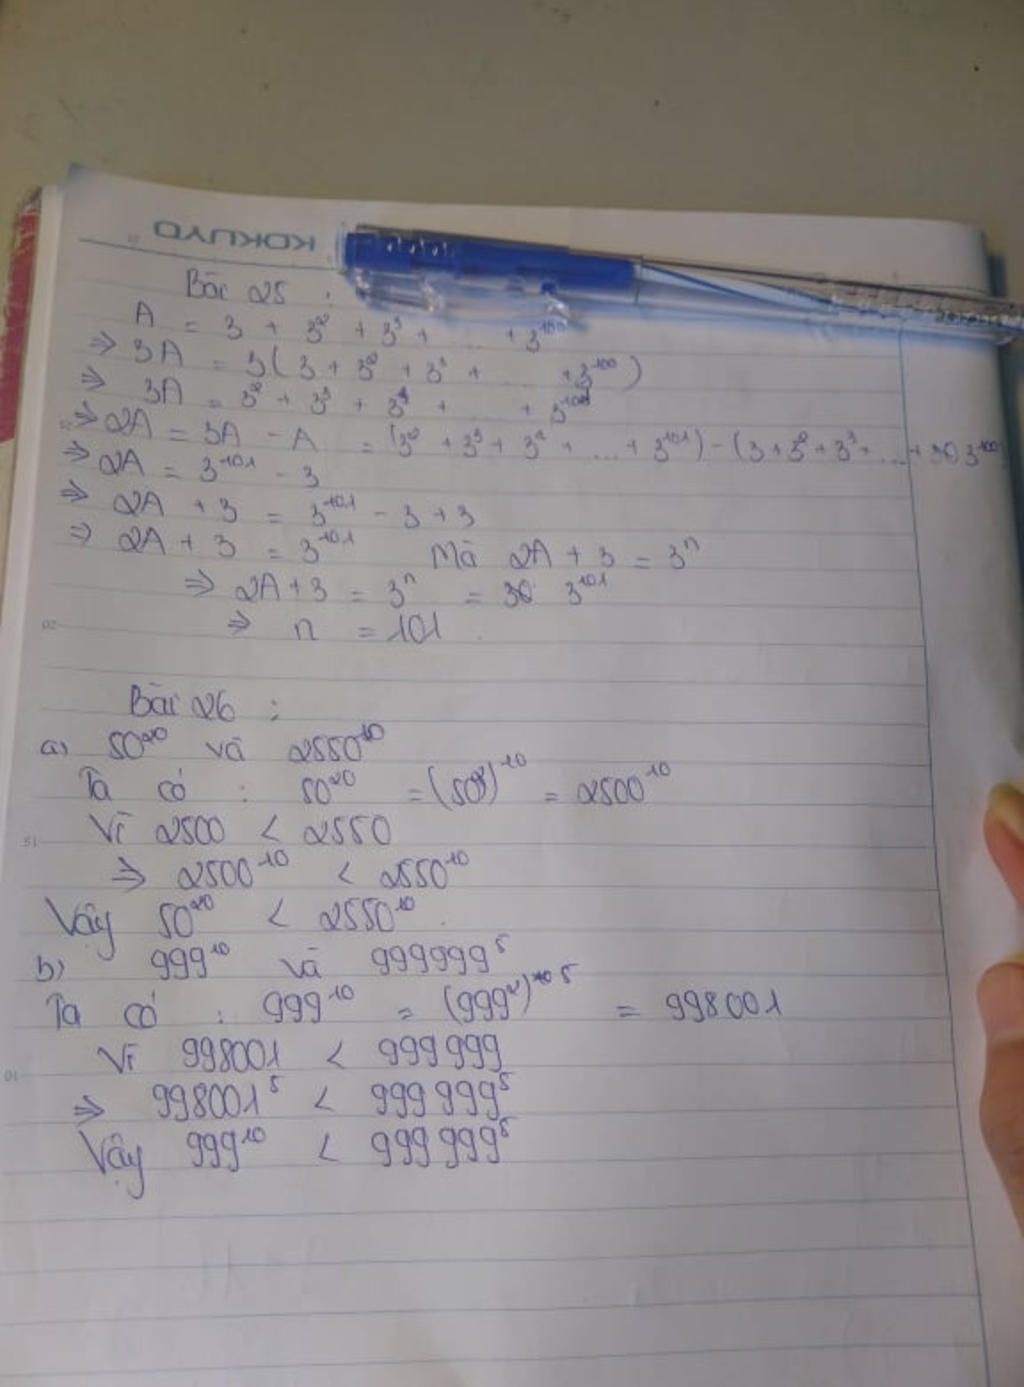 KOKUYO
Bài 25 :
A = 3 + 3² + 3³ + ... + 3¹⁰⁰
⇒ 3A = 3(3 + 3² + 3³ + ... + 3¹⁰⁰)
⇒ 3A = 3² + 3³ + 3⁴ + ... + 3¹⁰¹
⇒ 2A = 3A - A = (3² + 3³ + 3⁴ + ... + 3¹⁰¹) - (3 + 3² + 3³ + ... + 3¹⁰⁰)
⇒ 2A = 3¹⁰¹ - 3
⇒ 2A + 3 = 3¹⁰¹ - 3 + 3
⇒ 2A + 3 = 3¹⁰¹ Mà 2A + 3 = 3ⁿ
⇒ 2A + 3 = 3ⁿ = 3¹⁰¹
20 ⇒ n = 101.
Bài 26 :
a) 50²⁰ và 2550¹⁰
Ta có : 50²⁰ = (50²)¹⁰ = 2500¹⁰
15 Vì 2500 < 2550
⇒ 2500¹⁰ < 2550¹⁰
Vậy 50²⁰ < 2550¹⁰.
b) 999¹⁰ và 999999⁵
Ta có : 999¹⁰ = (999²)⁵ = 998001
10 Vì 998001 < 999999
⇒ 998001⁵ < 999999⁵
Vậy 999¹⁰ < 999999⁵